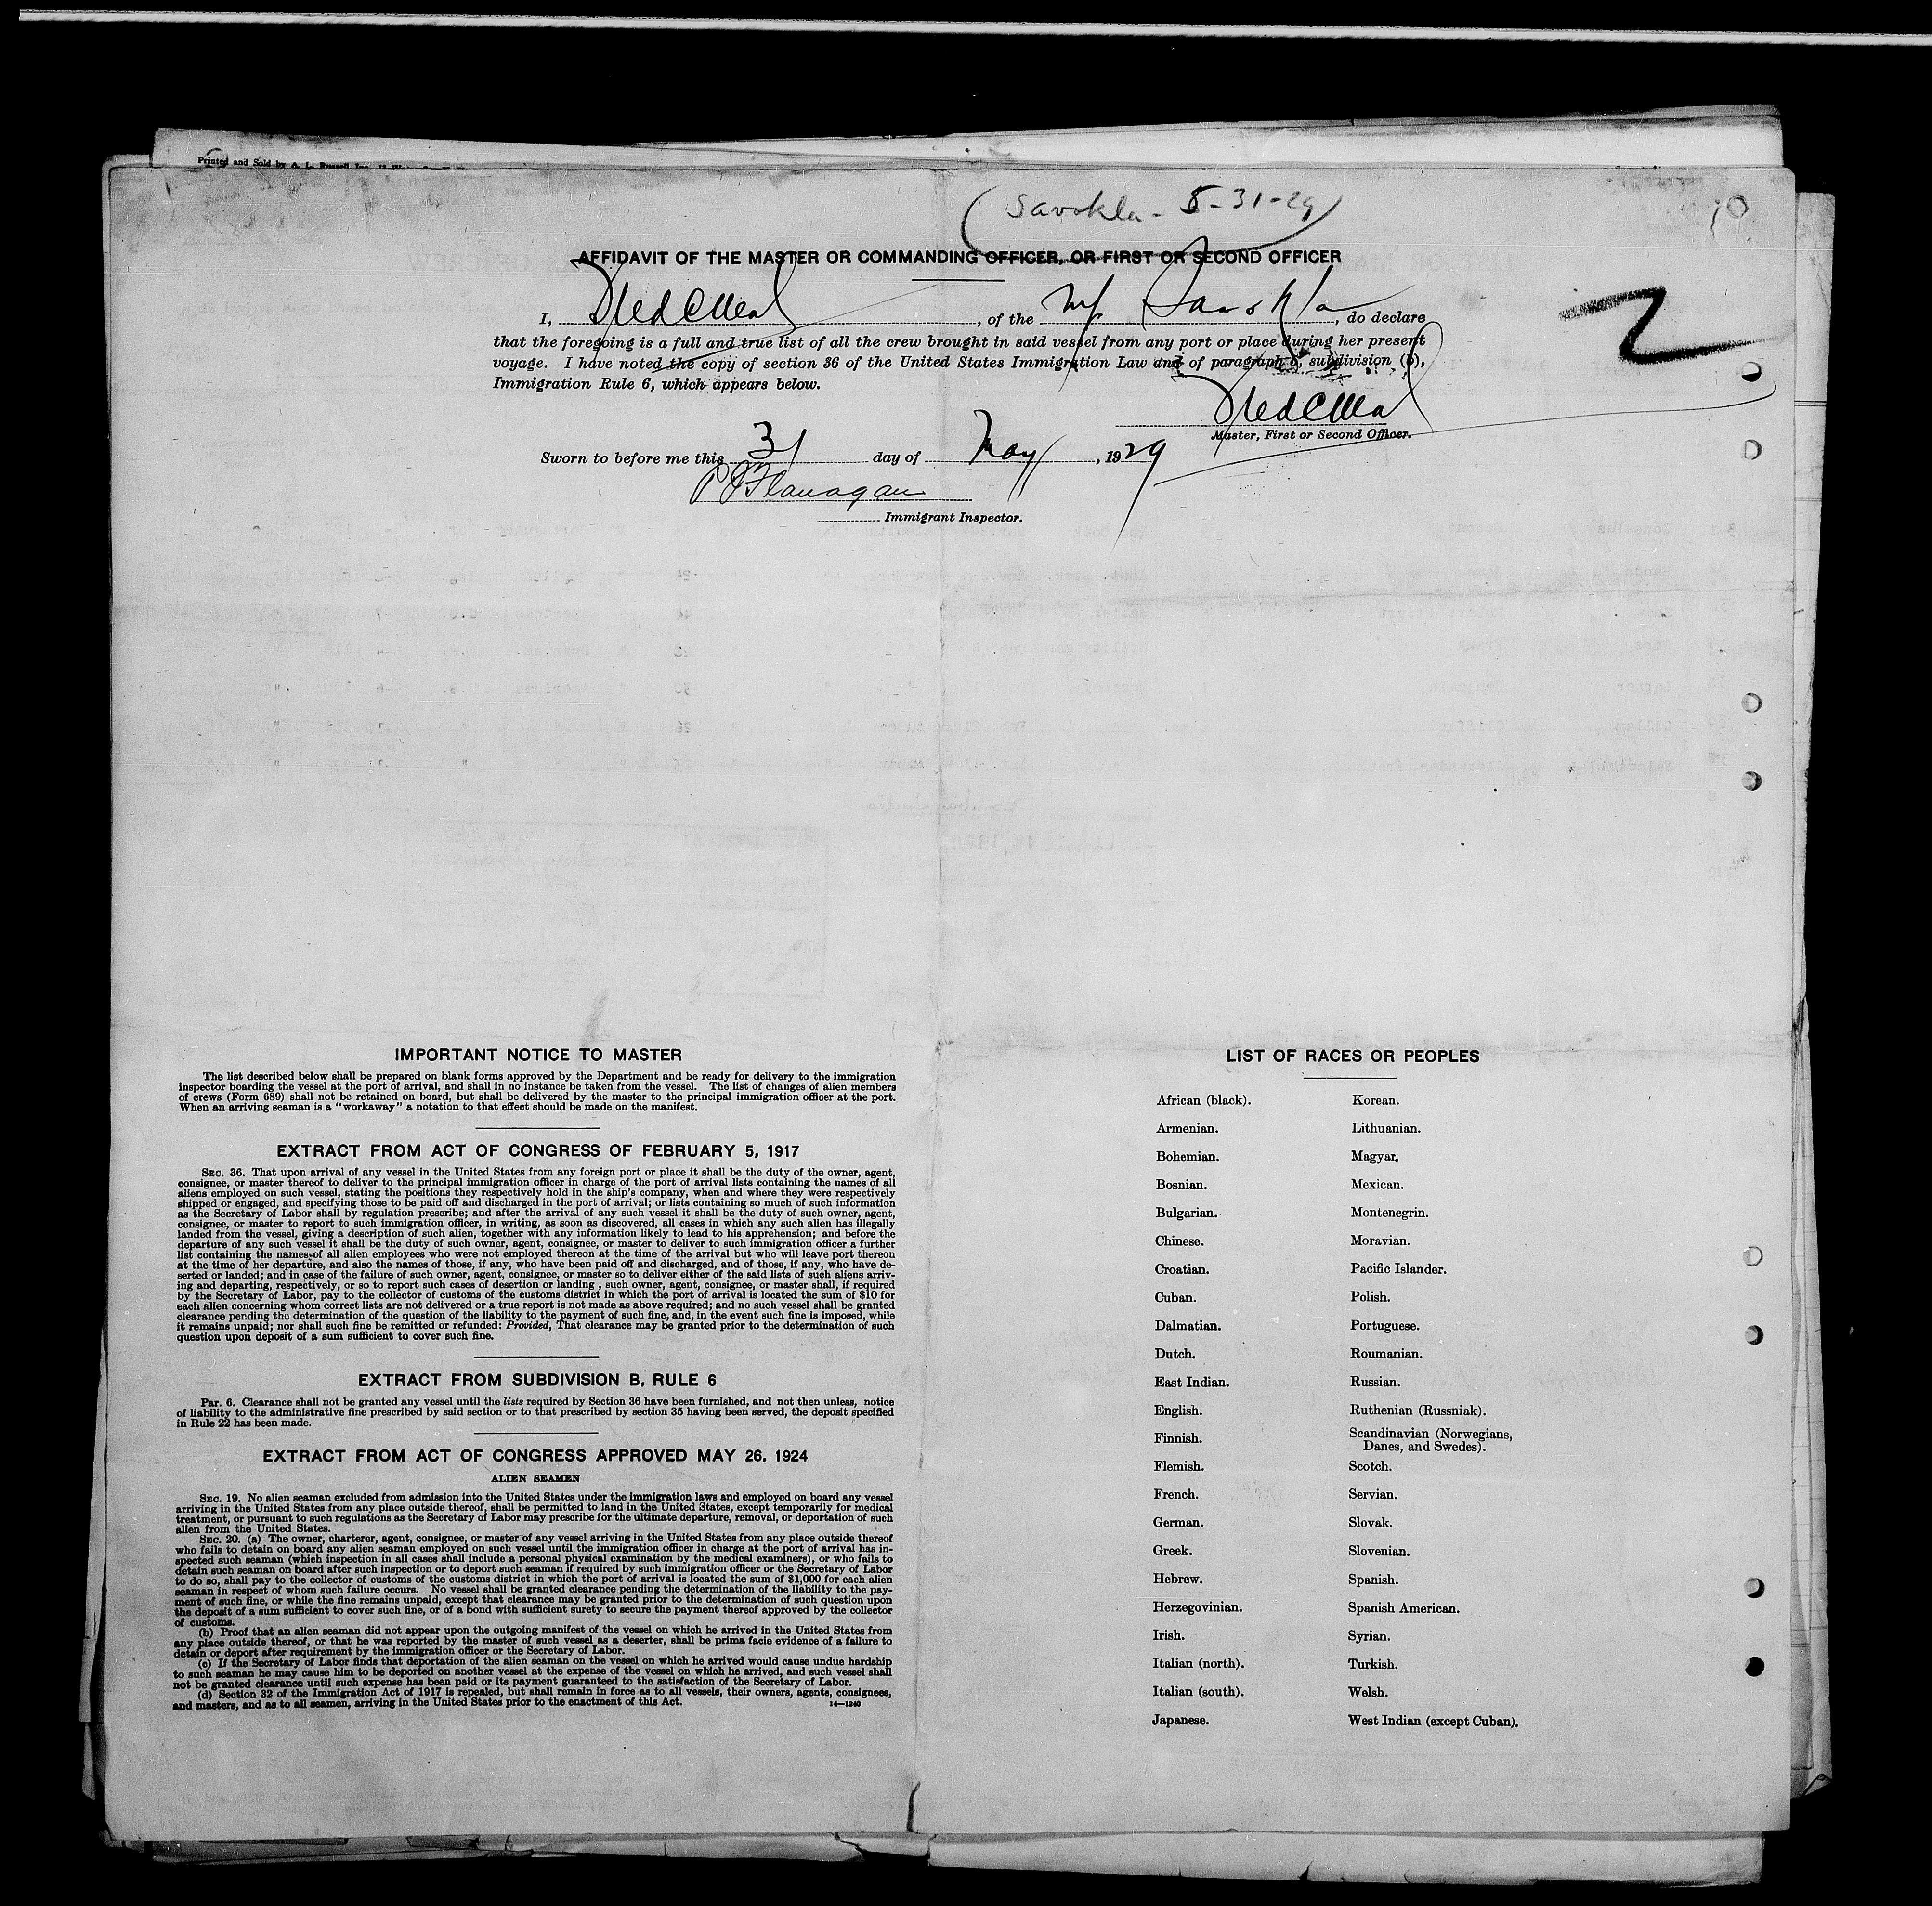 Printed and Sold by A. L. Russell Inc.
(Savokla - 5-31-29)
AFFIDAVIT OF THE MASTER OR COMMANDING OFFICER, OR FIRST OR SECOND OFFICER
I, , of the M/ Savokla, do declare
that the foregoing is a full and true list of all the crew brought in said vessel from any port or place during her present
voyage. I have noted the copy of section 36 of the United States Immigration Law and of paragraph 6, subdivision (b),
Immigration Rule 6, which appears below.
2
Master, First or Second Officer.
Sworn to before me this 31 day of May, 1929
P J Flanagan
Immigrant Inspector.
IMPORTANT NOTICE TO MASTER
The list described below shall be prepared on blank forms approved by the Department and be ready for delivery to the immigration
inspector boarding the vessel at the port of arrival, and shall in no instance be taken from the vessel. The list of changes of alien members
of crews (Form 689) shall not be retained on board, but shall be delivered by the master to the principal immigration officer at the port.
When an arriving seaman is a "workaway" a notation to that effect should be made on the manifest.
EXTRACT FROM ACT OF CONGRESS OF FEBRUARY 5, 1917
SEC. 36. That upon arrival of any vessel in the United States from any foreign port or place it shall be the duty of the owner, agent,
consignee, or master thereof to deliver to the principal immigration officer in charge of the port of arrival lists containing the names of all
aliens employed on such vessel, stating the positions they respectively hold in the ship's company, when and where they were respectively
shipped or engaged, and specifying those to be paid off and discharged in the port of arrival; or lists containing so much of such information
as the Secretary of Labor shall by regulation prescribe; and after the arrival of any such vessel it shall be the duty of such owner, agent,
consignee, or master to report to such immigration officer, in writing, as soon as discovered, all cases in which any such alien has illegally
landed from the vessel, giving a description of such alien, together with any information likely to lead to his apprehension; and before the
departure of any such vessel it shall be the duty of such owner, agent, consignee, or master to deliver to such immigration officer a further
list containing the names of all alien employees who were not employed thereon at the time of the arrival but who will leave port thereon
at the time of her departure, and also the names of those, if any, who have been paid off and discharged, and of those, if any, who have de-
serted or landed; and in case of the failure of such owner, agent, consignee, or master so to deliver either of the said lists of such aliens arriv-
ing and departing, respectively, or so to report such cases of desertion or landing , such owner, agent, consignee, or master shall, if required
by the Secretary of Labor, pay to the collector of customs of the customs district in which the port of arrival is located the sum of $10 for
each alien concerning whom correct lists are not delivered or a true report is not made as above required; and no such vessel shall be granted
clearance pending the determination of the question of the liability to the payment of such fine, and, in the event such fine is imposed, while
it remains unpaid; nor shall such fine be remitted or refunded: Provided, That clearance may be granted prior to the determination of such
question upon deposit of a sum sufficient to cover such fine.
EXTRACT FROM SUBDIVISION B, RULE 6
Par. 6. Clearance shall not be granted any vessel until the lists required by Section 36 have been furnished, and not then unless, notice
of liability to the administrative fine prescribed by said section or to that prescribed by section 35 having been served, the deposit specified
in Rule 22 has been made.
EXTRACT FROM ACT OF CONGRESS APPROVED MAY 26, 1924
ALIEN SEAMEN
SEC. 19. No alien seaman excluded from admission into the United States under the immigration laws and employed on board any vessel
arriving in the United States from any place outside thereof, shall be permitted to land in the United States, except temporarily for medical
treatment, or pursuant to such regulations as the Secretary of Labor may prescribe for the ultimate departure, removal, or deportation of such
alien from the United States.
SEC. 20. (a) The owner, charterer, agent, consignee, or master of any vessel arriving in the United States from any place outside thereof
who fails to detain on board any alien seaman employed on such vessel until the immigration officer in charge at the port of arrival has in-
spected such seaman (which inspection in all cases shall include a personal physical examination by the medical examiners), or who fails to
detain such seaman on board after such inspection or to deport such seaman if required by such immigration officer or the Secretary of Labor
to do so, shall pay to the collector of customs of the customs district in which the port of arrival is located the sum of $1,000 for each alien
seaman in respect of whom such failure occurs. No vessel shall be granted clearance pending the determination of the liability to the pay-
ment of such fine, or while the fine remains unpaid, except that clearance may be granted prior to the determination of such question upon
the deposit of a sum sufficient to cover such fine, or of a bond with sufficient surety to secure the payment thereof approved by the collector
of customs.
(b) Proof that an alien seaman did not appear upon the outgoing manifest of the vessel on which he arrived in the United States from
any place outside thereof, or that he was reported by the master of such vessel as a deserter, shall be prima facie evidence of a failure to
detain or deport after requirement by the immigration officer or the Secretary of Labor.
(c) If the Secretary of Labor finds that deportation of the alien seaman on the vessel on which he arrived would cause undue hardship
to such seaman he may cause him to be deported on another vessel at the expense of the vessel on which he arrived, and such vessel shall
not be granted clearance until such expense has been paid or its payment guaranteed to the satisfaction of the Secretary of Labor.
(d) Section 32 of the Immigration Act of 1917 is repealed, but shall remain in force as to all vessels, their owners, agents, consignees,
and masters, and as to all seamen, arriving in the United States prior to the enactment of this Act.
14—1240
LIST OF RACES OR PEOPLES
African (black). Korean.
Armenian. Lithuanian.
Bohemian. Magyar.
Bosnian. Mexican.
Bulgarian. Montenegrin.
Chinese. Moravian.
Croatian. Pacific Islander.
Cuban. Polish.
Dalmatian. Portuguese.
Dutch. Roumanian.
East Indian. Russian.
English. Ruthenian (Russniak).
Finnish. Scandinavian (Norwegians,
Danes, and Swedes).
Flemish. Scotch.
French. Servian.
German. Slovak.
Greek. Slovenian.
Hebrew. Spanish.
Herzegovinian. Spanish American.
Irish. Syrian.
Italian (north). Turkish.
Italian (south). Welsh.
Japanese. West Indian (except Cuban).